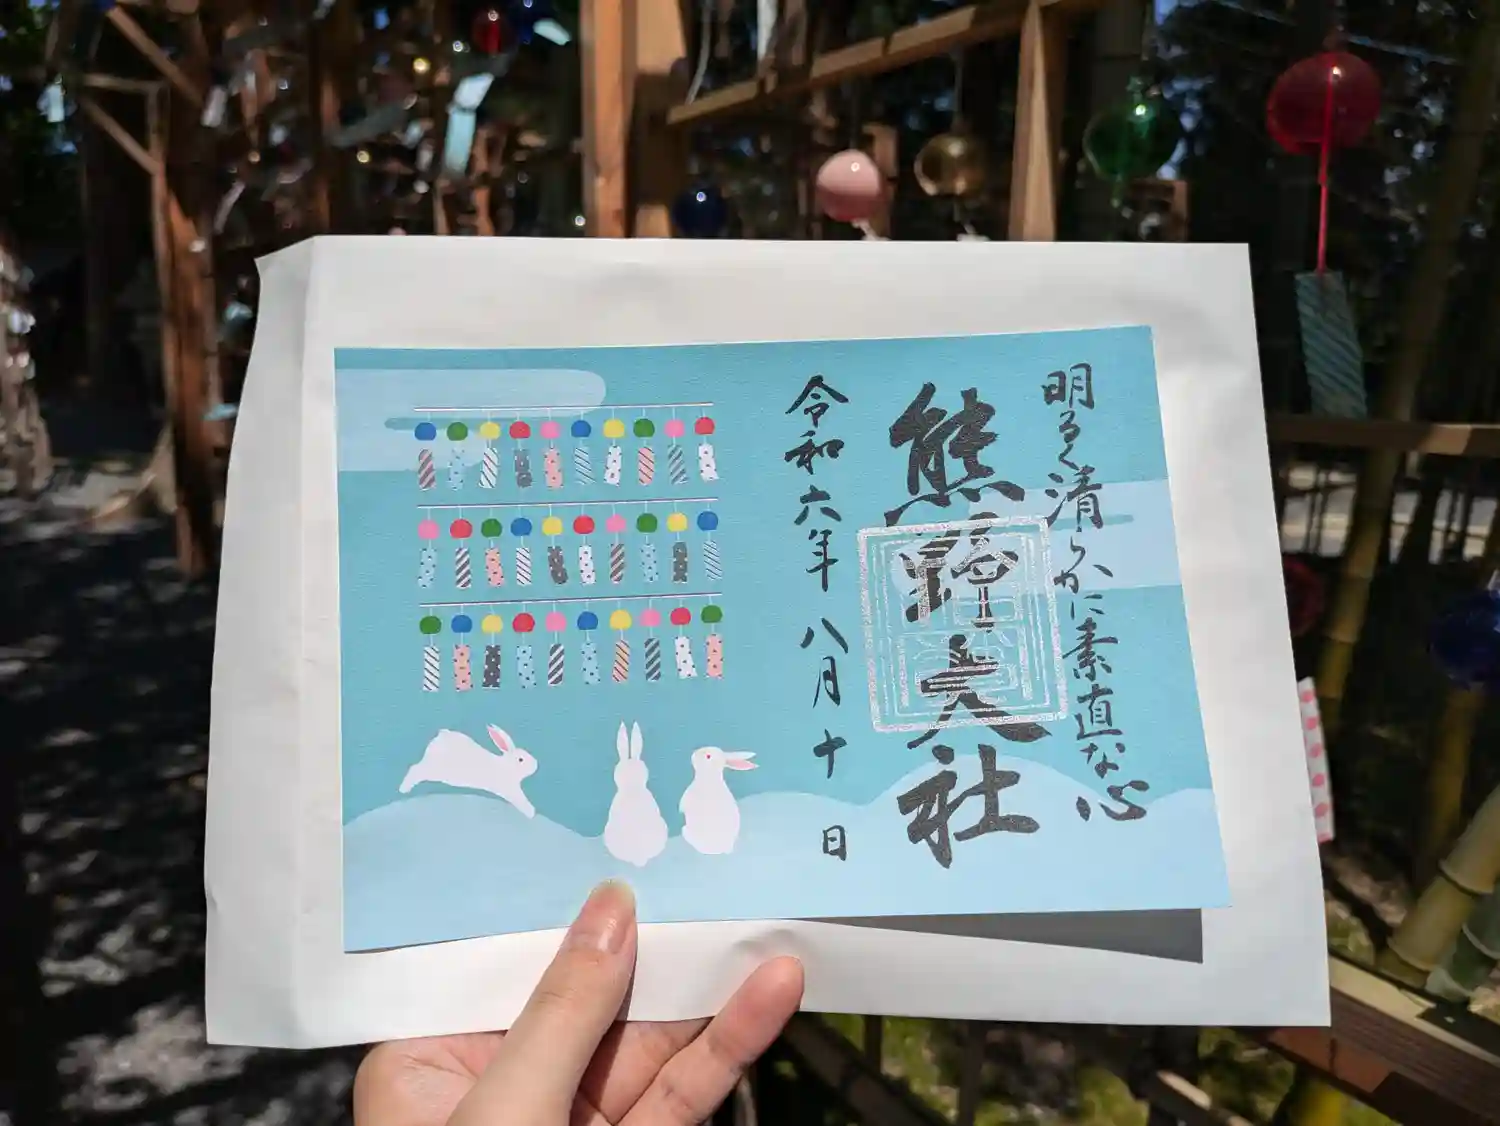 明るく清らかに素直な心
熊野大社
令和六年八月十日